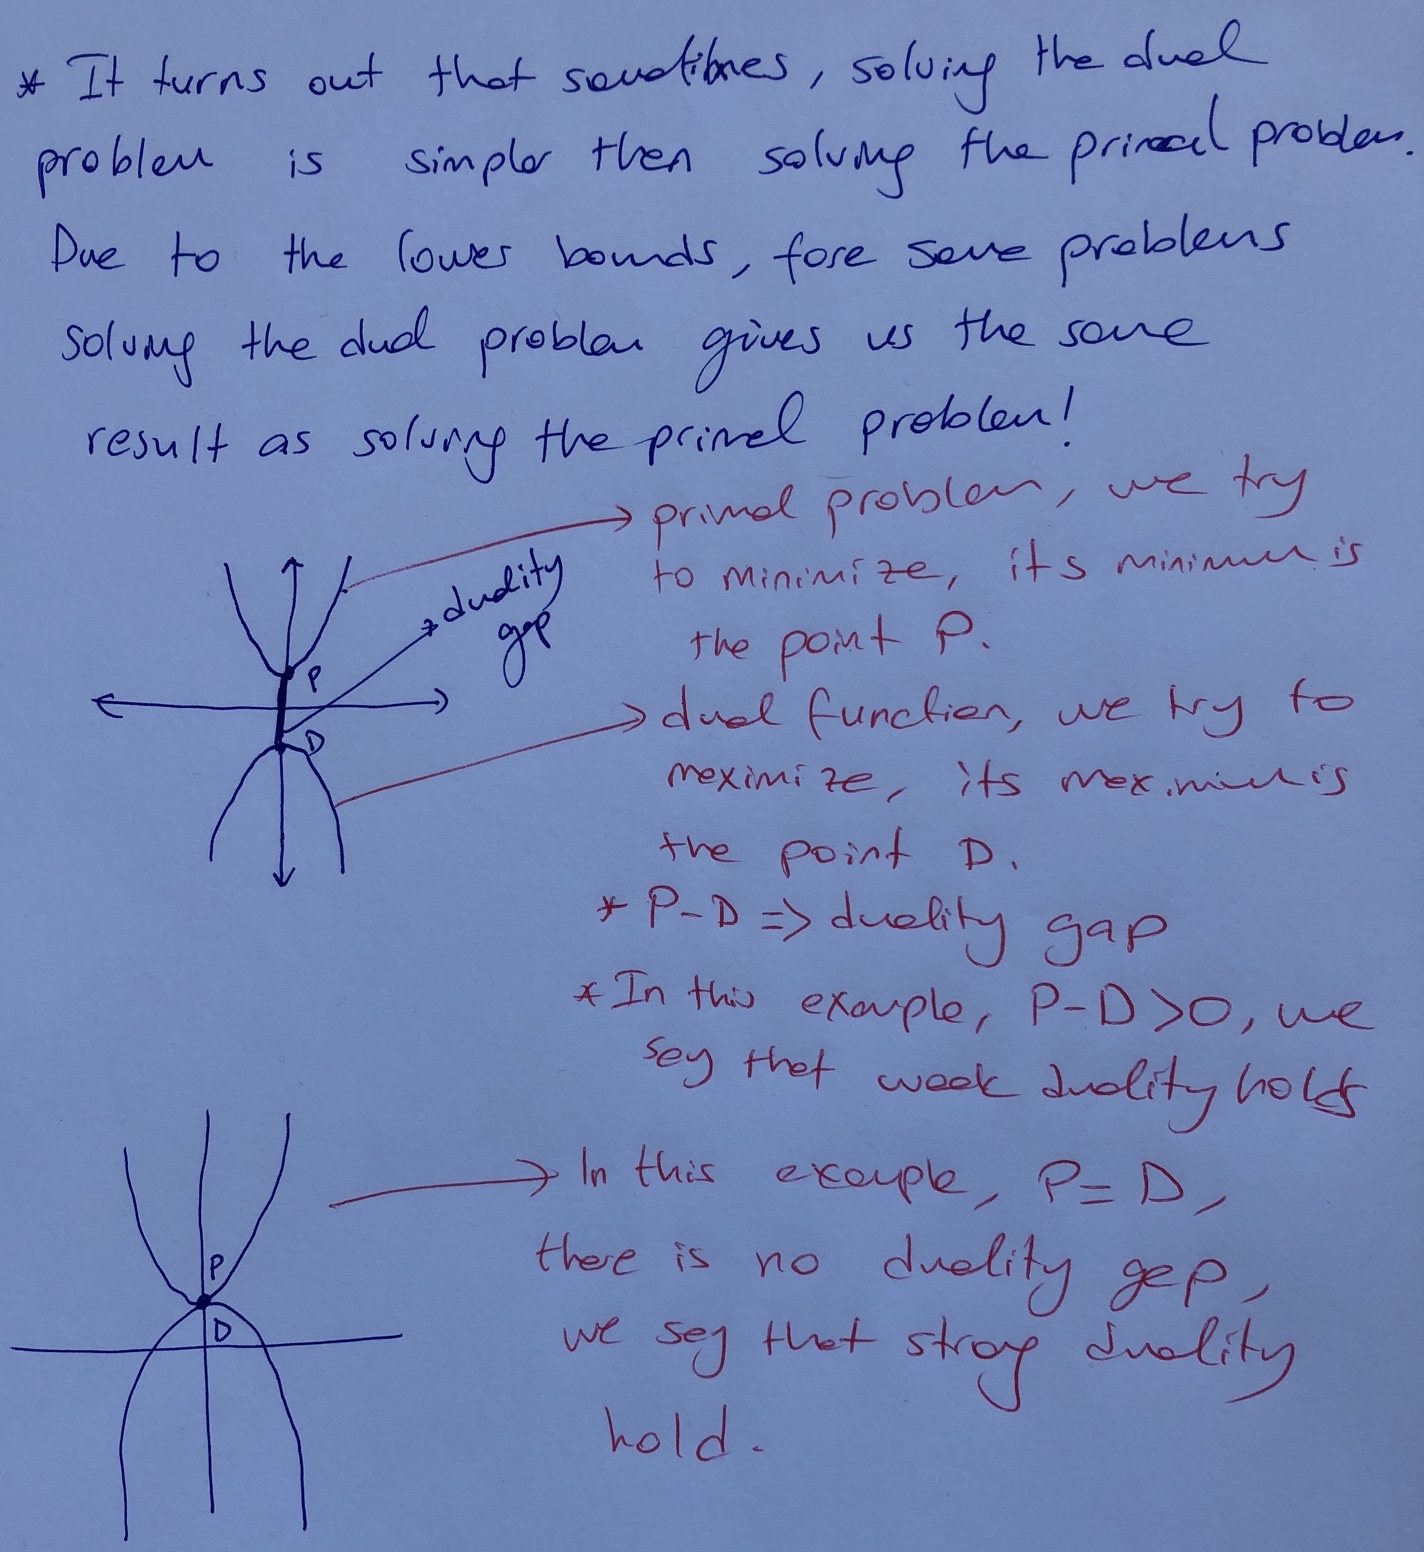 * It turns out that sometibnes, solving the dual
problem is simpler then solving the primal problem.
Due to the lower bounds, fore some problems
solving the dual problem gives us the same
result as solving the primal problem!
primal problem, we try
to minimize, its minimum is
the point P.
duality
gap
P
D
dual function, we try to
maximize, its maximum is
the point D.
* P-D => duality gap
* In this example, P-D>0, we
say that weak duality holds
In this example, P=D,
there is no duality gap,
we say that strong duality
hold.
P
D